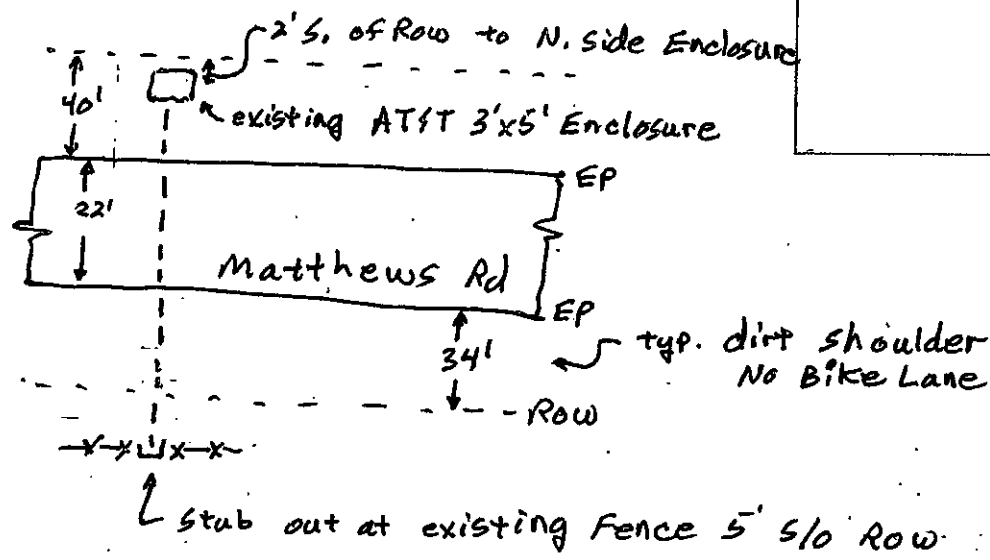 2' S. of Row to N. Side Enclosure
40'
existing AT&T 3'x5' Enclosure
EP
22'
Matthews Rd
EP
34'
typ. dirt shoulder
No Bike Lane
Row
stub out at existing Fence 5' S/O Row.